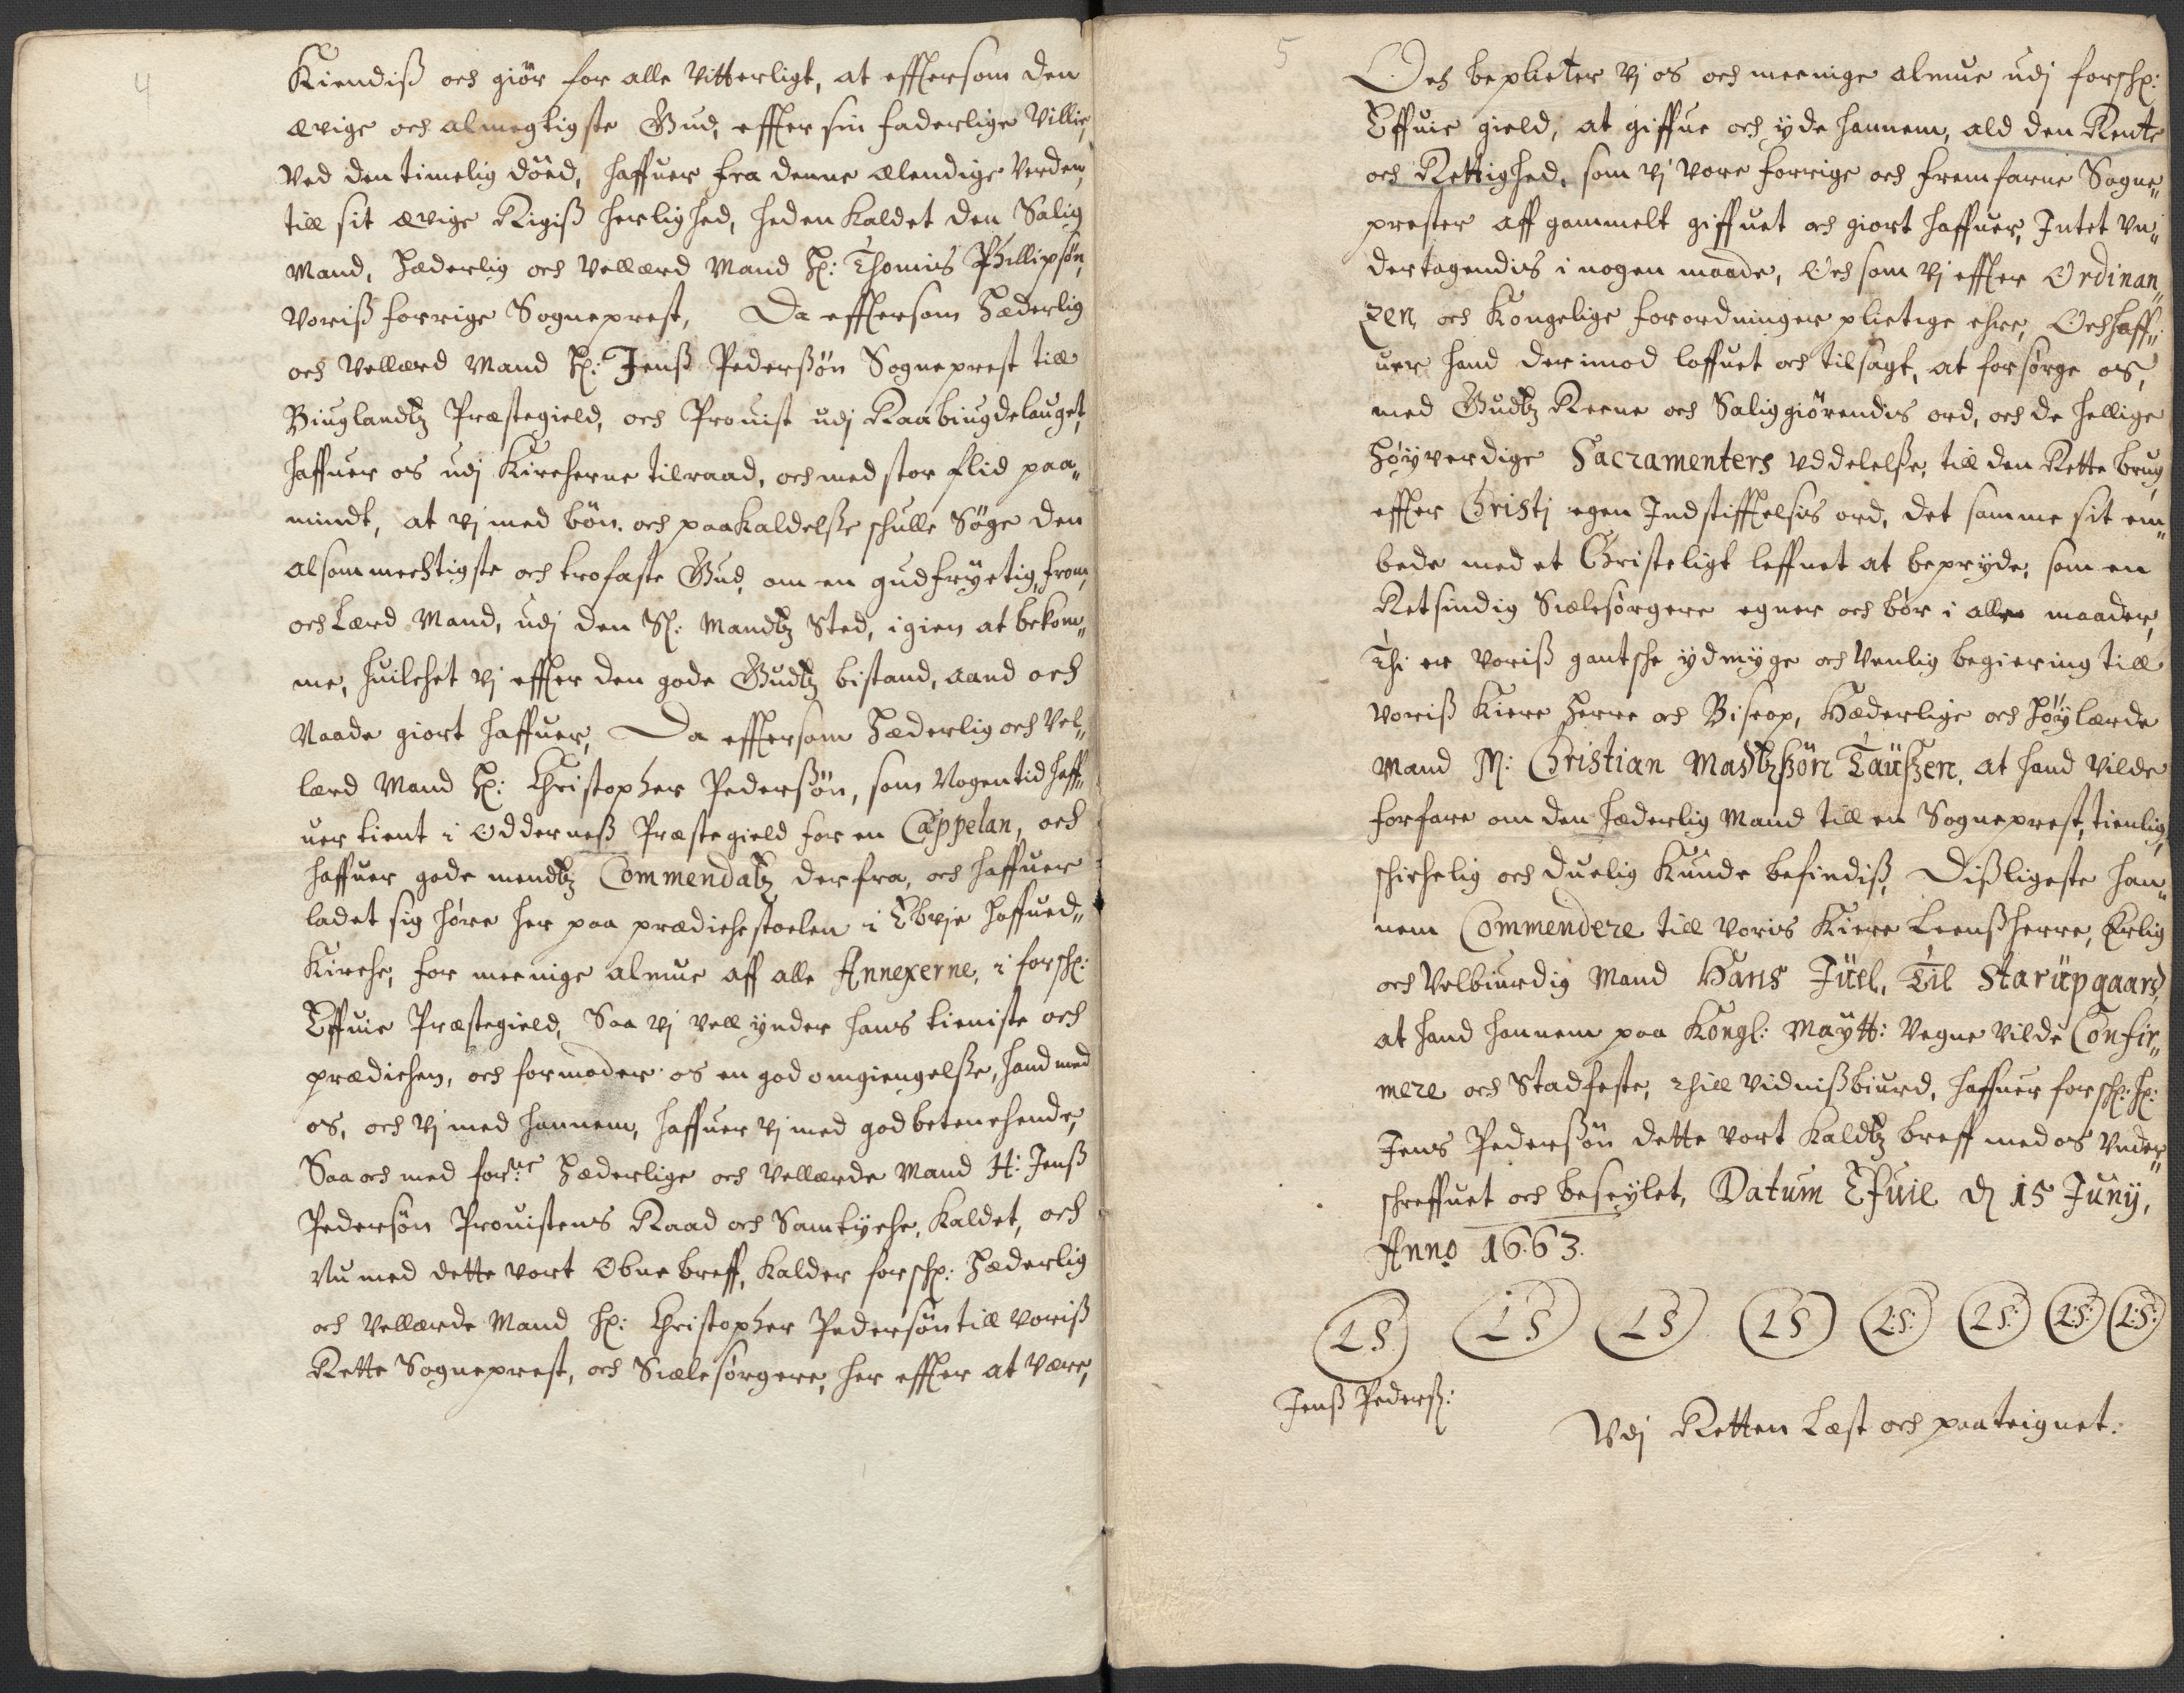 4
Kiendiß och giör for alle Vitterligt, at effter som den
ævige och almegtigste Gud, effter sin faderlige Villie,
Ved den timelig döed, haffuer fra denne elendige Verden,
till sit ævige Rigiß herlighed, heden kaldet den Salig
Mand, Hæderlig och Vellærd Mand H: Thomis Phillipsön,
Voriß forrige Sogneprest, Da effter som Hæderlig
och Vellærd Mand H: Jenß Pederßön Sogneprest till
Biuglandtz Præstegield, och Prouist udj Raabiugdelauget,
haffuer os udj Kircherne tilraad, och med stor flid paa„
mindt, at vj med bön och paakaldelße schulle Söge den
alsommechtigste och trofaste Gud, om en gudfryctig, from,
och Lærd Mand, udj den Sl: Mandtz Sted, igien at bekom„
me, huilchet vj effter den gode Gudtz bistand, aand och
Naade giort haffuer, Da effter som Hæderlig och Vel„
lærd Mand H: Christopher Pederßön, som Nogen tid haff„
uer tient i Odderneß Præstegield for en Cappelan, och
haffuer gode mendtz Commendatz der fra, och haffuer
ladet sig höre her paa prædichestoelen i Ebvje Hoffued„
Kirche, for meenige almue aff alle Annexerne, i forschr:
Effuie Præstegield, Saa vj vell ynder hans tieniste och
prædichen, och formoder os en god omgiengelße, hand med
os, och vj med hannem, haffuer vj med god betenchende,
Saa och med forne: Hæderlige och Vellærde Mand H: Jenß
Pedersön Prouistens Raad och Samtyche, kaldet, och
Nu med dette vort Obne breff, kalder forschr: Hæderlig
och Vellærde Mand H: Christopher Pedersön till voriß
Rette Sogneprest, och Siælesörgere, her effter at være,
5
Och beplicter vj os och meenige almue udj forschr:
Effuie gield, at giffue och yde hannem, ald den Rente
och Rettighed, som vj vore forrige och fremfarne Sogne„
prester aff gammelt giffuet och giort haffuer, Intet vn„
dertagendis i nogen maade, Och som vj effter Ordinan„
zen, och Kongelige forordninger plictige ehre, Och haff„
uer hand der imod loffuet och tilsagt, at forsörge os,
med Gudtz Reene och Saliggiörendis ord, och de hellige
Höyverdige Sacramenters vddelelße, till den Rette brug,
effter Christj egen Indstifftelsis ord, det samme sit em„
bede med et Christeligt leffnet at bepryde, som en
Retsindig Siælesörgere egner och bör i alle maader,
Thi er Voriß gantsche ydmyge och Venlig begiering till
voriß Kiere Herre och Biscop, Hæderlige och Höylærde
Mand M: Christian Madtzßön Taüßen, at hand vilde
forfare om den Hæderlig Mand till en Sogneprest, tienlig,
schichelig och duelig Kunde befindiß, Dißligeste han„
nem Commendere till voris Kiere Leenßherre, Erlig
och Velbiurdig Mand Hans Jüel, Til Starüpgaard,
at hand hannem paa Kongl: Maytt: Vegne vilde Confir„
mere och Stadfeste, Till Vidnißbiurd, haffuer forschr: H:
Jens Pederßön dette vort Kaldtz breff med os vnder„
schreffuet och beseylet, Datum Efuie d 15 Junÿ,
Anno 1663.
L S L S L S L S L:S: L S: L:S: L:S:
Jenß Pederß:
Vdj Retten Læst och paateignet.